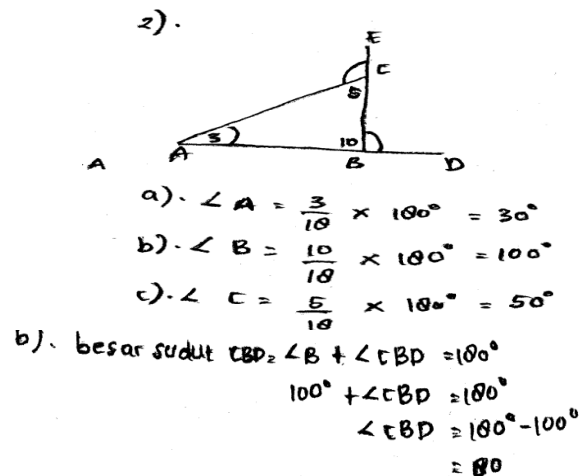 2).
E
C
5
3
10
A
A
B
D
a). ∠ A = 3/18 × 180° = 30°
b). ∠ B = 10/18 × 180° = 100°
c). ∠ C = 5/18 × 180° = 50°
b). besar sudut CBD = ∠B + ∠CBD = 180°
100° + ∠CBD = 180°
∠CBD = 180° - 100°
= 80